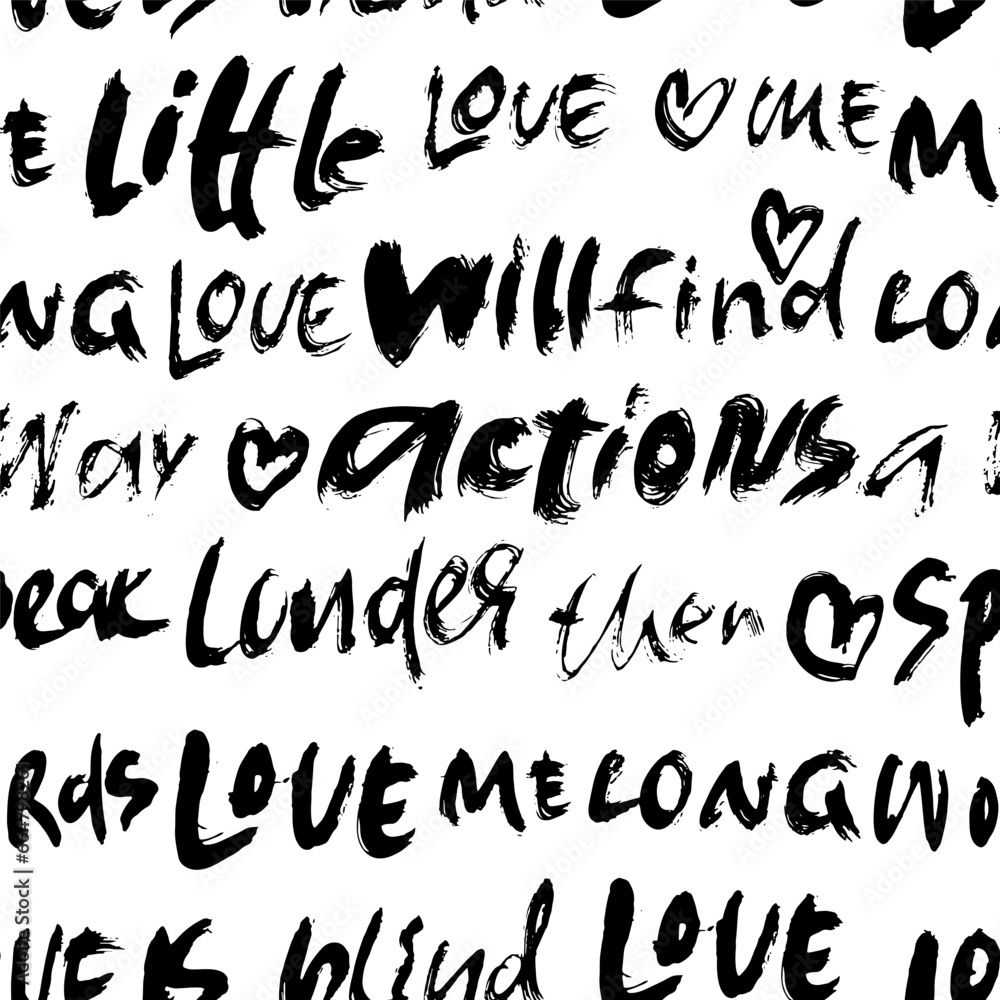 E Little LOVE ME M
NG LOVE Will find LO
Way actions a
peak Louder then Sp
Rds LOVE ME LONG WO
VE IS blind LOVE LO
Adobe Stock | #664798291